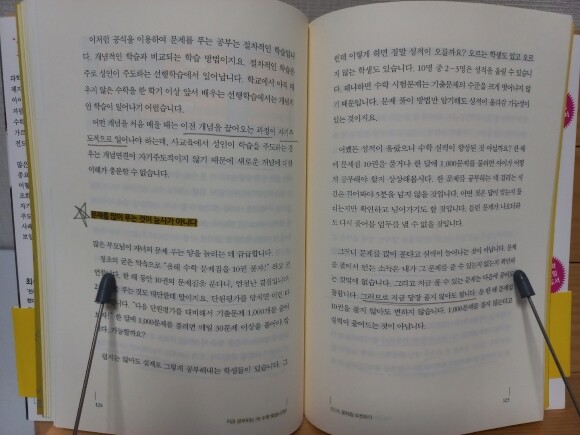 이처럼 공식을 이용하여 문제를 푸는 공부는 절차적인 학습입니
다. 개념적인 학습과 비교되는 학습 방법이지요. 절차적인 학습은
주로 성인이 주도하는 선행학습에서 일어납니다. 학교에서 아직 배
우지 않은 수학을 한 학기 이상 앞서 배우는 선행학습에서는 개념적
인 학습이 일어나기 어렵습니다.
어떤 개념을 처음 배울 때는 이전 개념을 끌어오는 과정이 자기주
도적으로 일어나야 하는데, 사교육에서 성인이 학습을 주도하는 경
우는 개념연결이 자기주도적이지 않기 때문에 새로운 개념에 대한
이해가 충분할 수 없습니다.
문제를 많이 푸는 것이 능사가 아니다
많은 부모님이 자녀의 문제 푸는 양을 늘리는 데 급급합니다.
정초의 굳은 약속으로 "올해 수학 문제집을 10권 풀자!"라고
한 해 동안 10권의 문제집을 푼다니, 엄청난 결심입니다.
푸는 것도 대단한데 말이지요. 단원평가를 앞두면 이런
"다음 단원평가를 대비해서 기출문제 1,000개를 풀어
1,000문제를 풀려면 매일 30문제 이상을 풀어야 합
가능할까요?
쉽지는 않아도 실제로 그렇게 공부해내는 학생들이 있습니다. 그
124
런데 이렇게 하면 정말 성적이 오를까요? 오르는 학생도 있고 오르
지 않는 학생도 있습니다. 10명 중 2~3명은 성적을 올릴 수 있습니
다. 왜냐하면 수학 시험문제는 기출문제의 수준을 크게 벗어나지 않
기 때문입니다. 문제 풀이 방법만 암기해도 성적이 올라갈 가능성이
있는 것이지요.
어쨌든 성적이 올랐으니 수학 실력이 향상된 것 아닐까요? 한 해
에 문제집 10권을 풀거나 한 달에 1,000문제를 풀려면 아이가 어떻
게 공부해야 할지 상상해봅시다. 한 문제를 공부하는 데 걸리는 시
간은 길어봐야 5분을 넘지 않을 것입니다. 어떤 것은 답이 맞는지 틀
리는지만 확인하고 넘어가기도 할 것입니다. 틀린 문제가 나오더라
도 다시 풀어볼 엄두를 낼 수 없을 것입니다.
그러니 문제를 많이 푼다고 실력이 늘어나는 것이 아닙니다. 문제
을 풀어서 얻는 소득은 내가 그 문제를 풀 수 있는지 없는지 확인하
는 것밖에 없습니다. 그리고 지금 풀 수 있는 문제는 다음에 풀어도
풀립니다. 그러므로 지금 당장 풀지 않아도 됩니다. 올 한 해 문제집
10권을 풀지 않아도 변하지 않습니다. 1,000문제를 풀지 않는다고
실력이 줄어드는 것이 아닙니다.
125